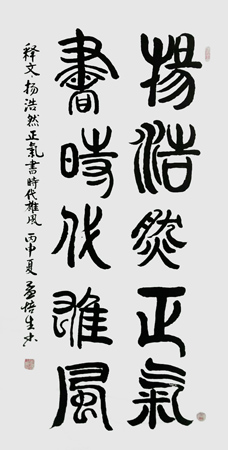 揚浩然正氣
書時代雄風
释文揚浩然正氣書時代雄风 丙申夏